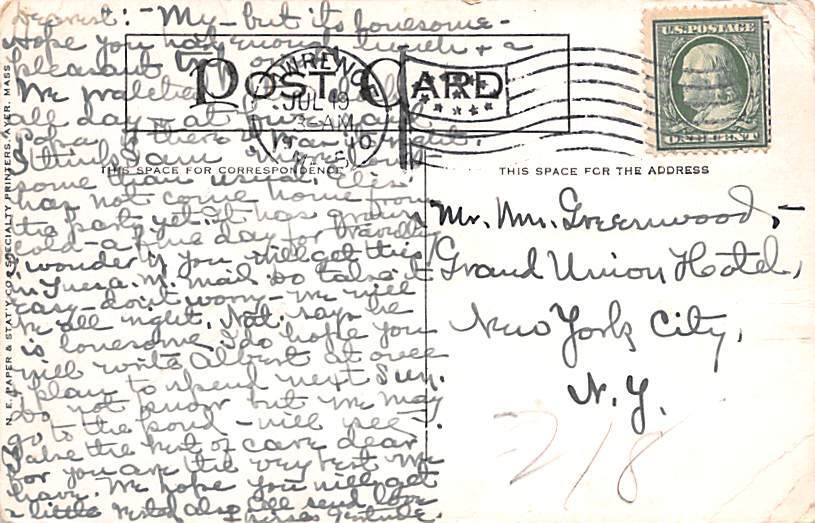 Dearest: - My - but its lonesome -
Hope you had enough lunch + a
pleasant
We
all day - at
Papa if there
I think I am more lone-
some than usual. Elsi
has not come home from
the party yet. It has grown
cold - a fine day for travell
I wonder if you will get this
in Tues. a. M. mail Do take it
easy - don't worry - we will
be all right. Nat. says he
is lonesome. I do hope you
will write Albert at once
I plan to spend next Sun.
Do not know but we may
go to the pond - will see.
Take the best of care dear
for you are the very best we
have. We hope you will get
a little rested also. All send love
Gertrude.
POST CARD
LAWRENCE
JUL 19
3 - AM
THIS SPACE FOR CORRESPONDENCE
THIS SPACE FOR THE ADDRESS
U.S. POSTAGE
ONE CENT
Mr. Wm. Greenwood, -
Grand Union Hotel,
New York City,
N. Y.
218
N. E. PAPER & STAT'Y CO. SPECIALTY PRINTERS, AYER, MASS.